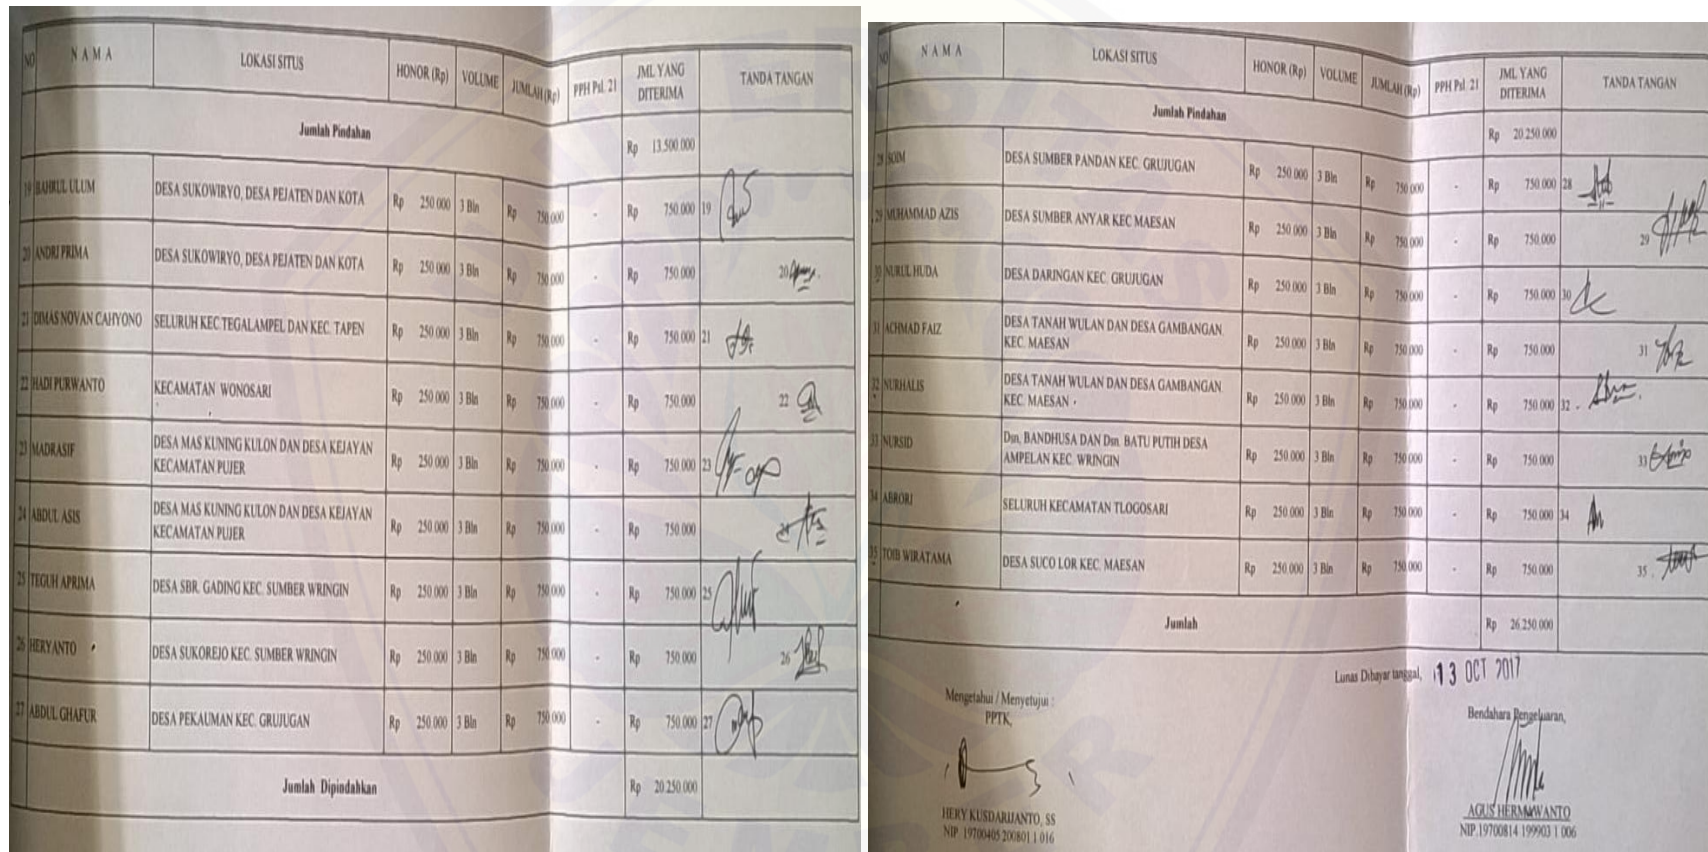 NO NAMA LOKASI SITUS HONOR (Rp) VOLUME JUMLAH (Rp) PPH Psl. 21 JML YANG DITERIMA TANDA TANGAN
Jumlah Pindahan Rp 13.500.000
19 BAHRUL ULUM DESA SUKOWIRYO, DESA PEJATEN DAN KOTA Rp 250.000 3 Bln Rp 750.000 - Rp 750.000 19
20 ANDRI PRIMA DESA SUKOWIRYO, DESA PEJATEN DAN KOTA Rp 250.000 3 Bln Rp 750.000 - Rp 750.000 20
21 DIMAS NOVAN CAHYONO SELURUH KEC.TEGALAMPEL DAN KEC. TAPEN Rp 250.000 3 Bln Rp 750.000 - Rp 750.000 21
22 HADI PURWANTO KECAMATAN WONOSARI Rp 250.000 3 Bln Rp 750.000 - Rp 750.000 22
23 MADRASIF DESA MAS KUNING KULON DAN DESA KEJAYAN KECAMATAN PUJER Rp 250.000 3 Bln Rp 750.000 - Rp 750.000 23
24 ABDUL ASIS DESA MAS KUNING KULON DAN DESA KEJAYAN KECAMATAN PUJER Rp 250.000 3 Bln Rp 750.000 - Rp 750.000 24
25 TEGUH APRIMA DESA SBR. GADING KEC. SUMBER WRINGIN Rp 250.000 3 Bln Rp 750.000 - Rp 750.000 25
26 HERYANTO DESA SUKOREJO KEC. SUMBER WRINGIN Rp 250.000 3 Bln Rp 750.000 - Rp 750.000 26
27 ABDUL GHAFUR DESA PEKAUMAN KEC. GRUJUGAN Rp 250.000 3 Bln Rp 750.000 - Rp 750.000 27
Jumlah Dipindahkan Rp 20.250.000
NO NAMA LOKASI SITUS HONOR (Rp) VOLUME JUMLAH (Rp) PPH Psl. 21 JML YANG DITERIMA TANDA TANGAN
Jumlah Pindahan Rp 20.250.000
28 SOIM DESA SUMBER PANDAN KEC. GRUJUGAN Rp 250.000 3 Bln Rp 750.000 - Rp 750.000 28
29 MUHAMMAD AZIS DESA SUMBER ANYAR KEC MAESAN Rp 250.000 3 Bln Rp 750.000 - Rp 750.000 29
30 NURUL HUDA DESA DARINGAN KEC. GRUJUGAN Rp 250.000 3 Bln Rp 750.000 - Rp 750.000 30
31 ACHMAD FAIZ DESA TANAH WULAN DAN DESA GAMBANGAN KEC. MAESAN Rp 250.000 3 Bln Rp 750.000 - Rp 750.000 31
32 NURHALIS DESA TANAH WULAN DAN DESA GAMBANGAN KEC. MAESAN Rp 250.000 3 Bln Rp 750.000 - Rp 750.000 32
33 NURSID Dsn. BANDHUSA DAN Dsn. BATU PUTIH DESA AMPELAN KEC. WRINGIN Rp 250.000 3 Bln Rp 750.000 - Rp 750.000 33
34 ABRORI SELURUH KECAMATAN TLOGOSARI Rp 250.000 3 Bln Rp 750.000 - Rp 750.000 34
35 TOIB WIRATAMA DESA SUCO LOR KEC. MAESAN Rp 250.000 3 Bln Rp 750.000 - Rp 750.000 35
Jumlah Rp 26.250.000
Lunas Dibayar tanggal, 13 OCT 2017
Mengetahui / Menyetujui :
PPTK,
Bendahara Pengeluaran,
HERY KUSDARIJANTO, SS
NIP. 19700405 200801 1 016
AGUS HERMAWANTO
NIP.19700814 199903 1 006